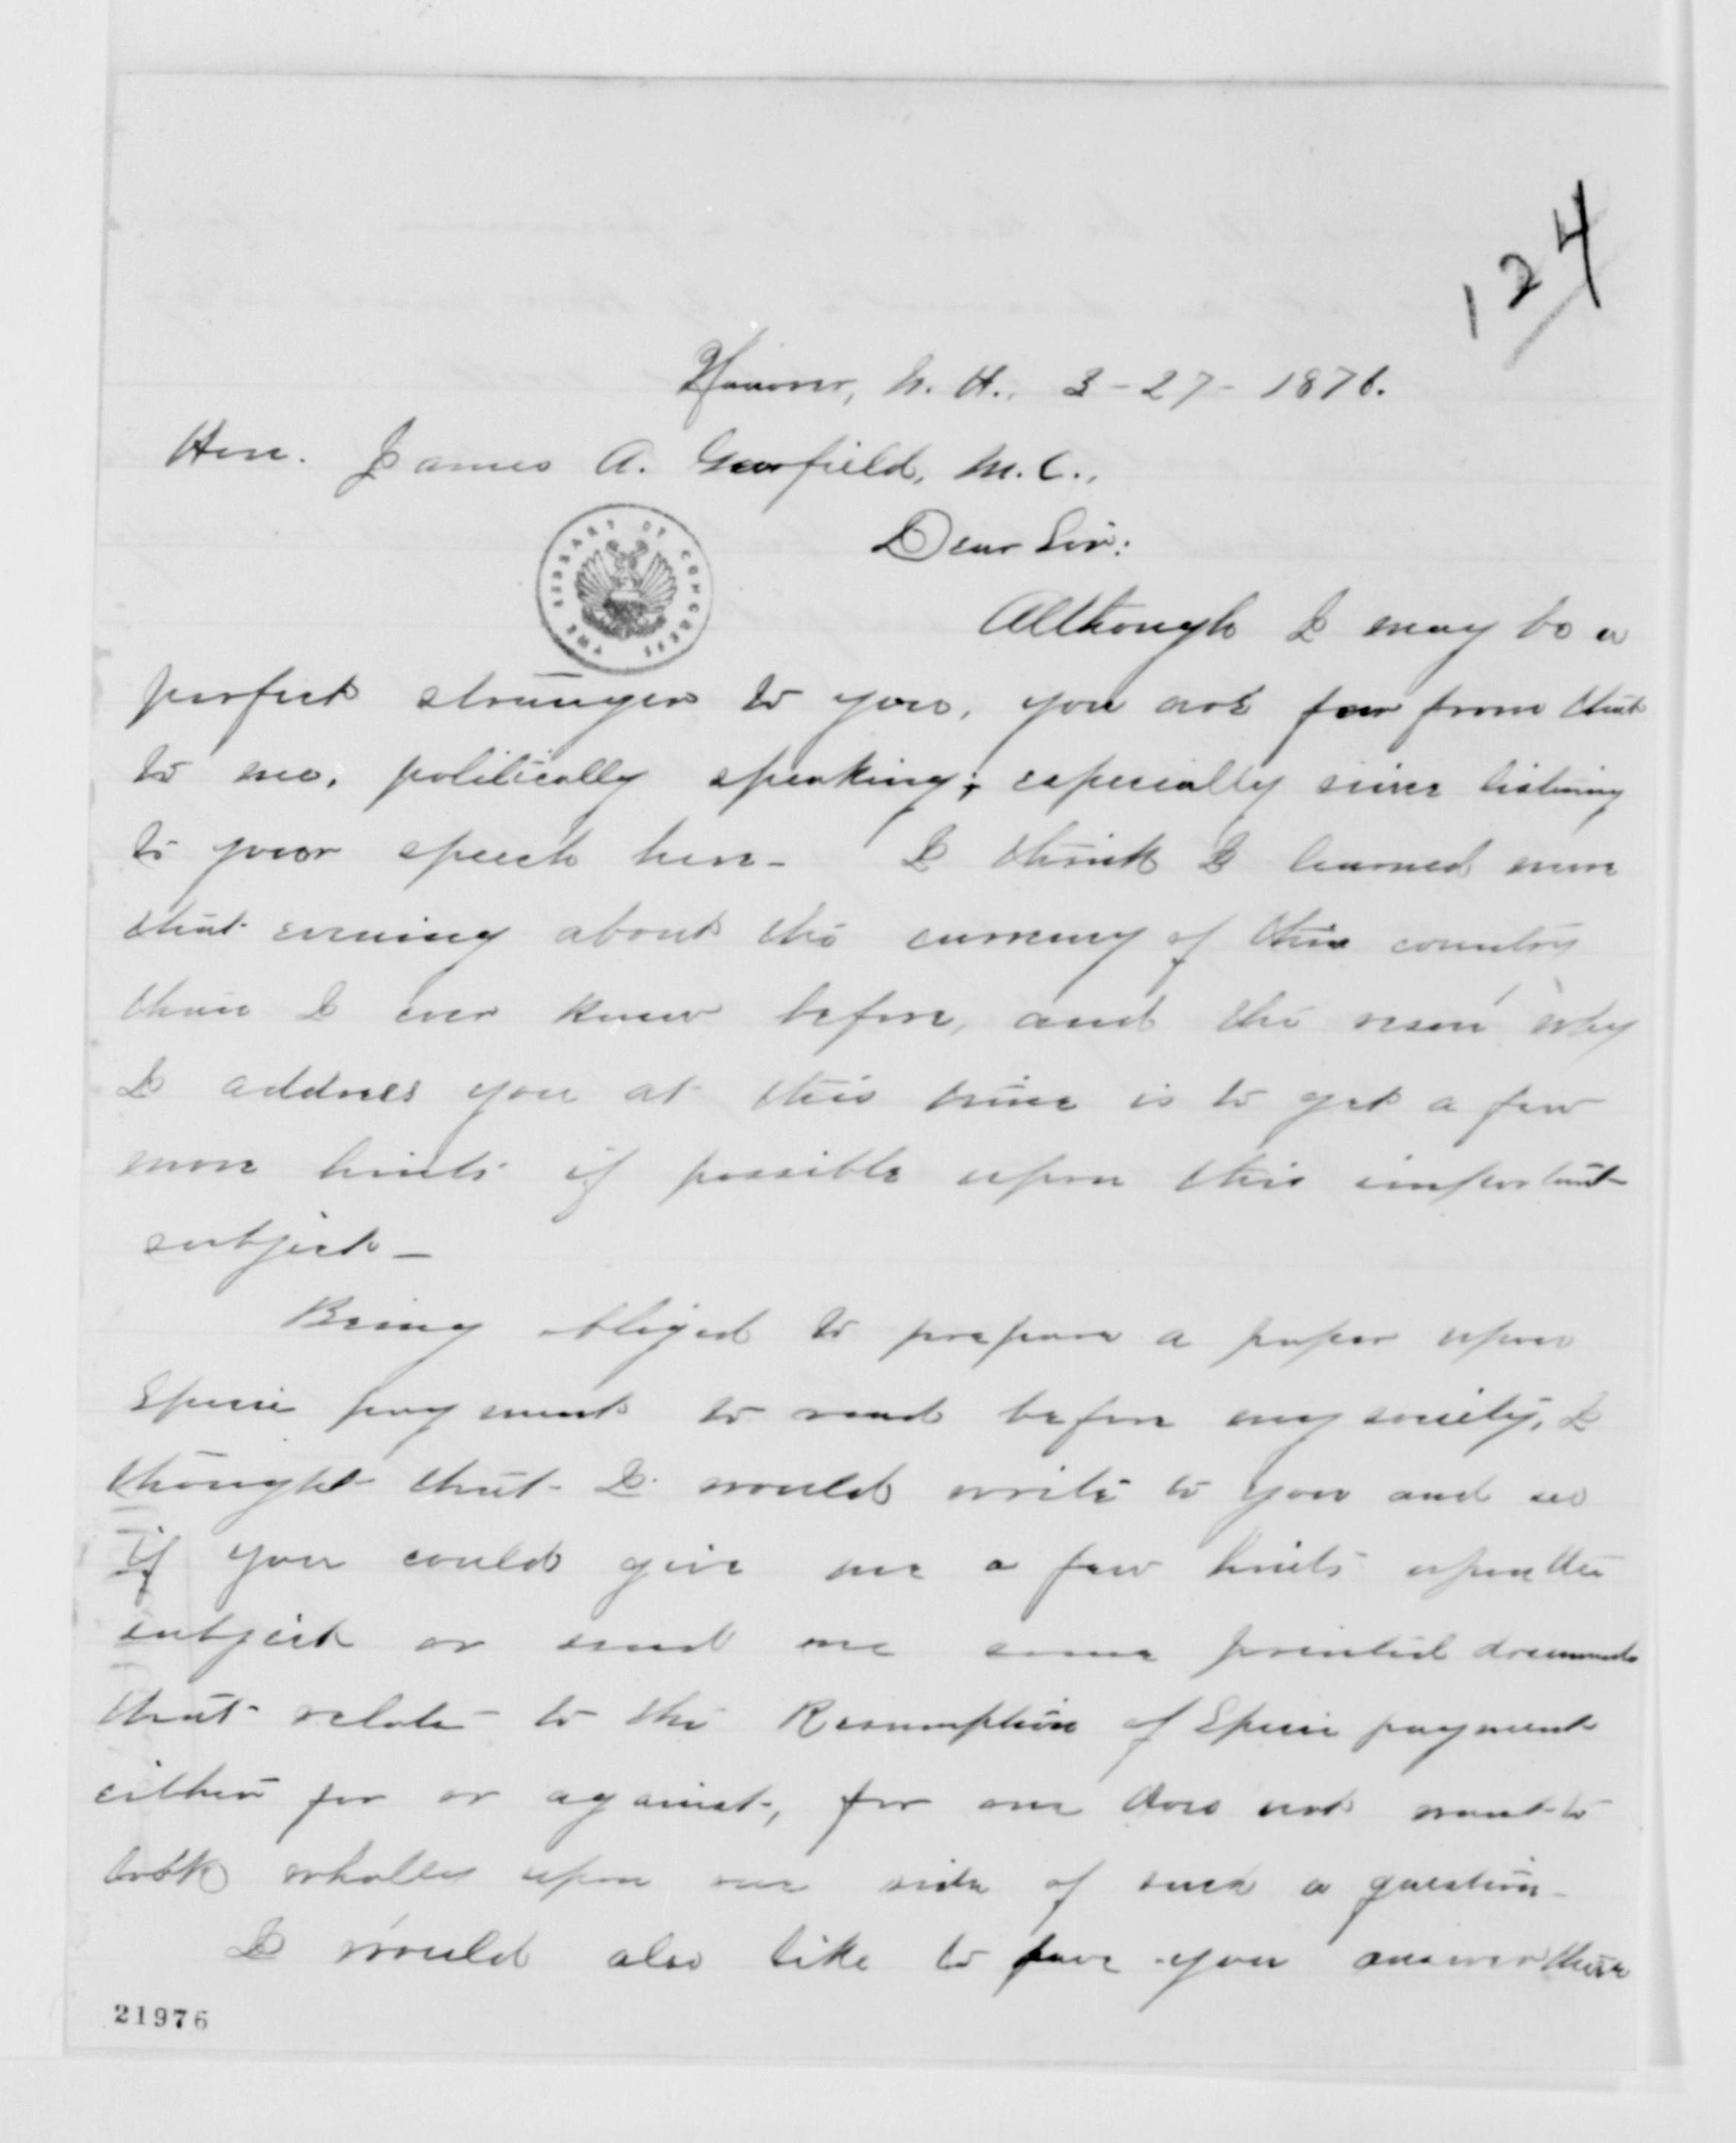 124
Hanover, N. H., 3-27-1876.
Hon. James A. Garfield, M.C.,
Dear Sir:
THE LIBRARY OF CONGRESS
Although I may be a
perfect stranger to you, you are far from that
to me, politically speaking; especially since listening
to your speech here- I think I learned more
that evening about the currency of this country
than I ever knew before, and the reson why
I address you at this time is to get a few
more hints if possible upon this important
subject-
Being obliged to prepare a paper upon
Specie payment to read before my society, I
thought that I would write to you and see
if you could give me a few hints upon the
subject or send me some printed documents
that relate to the Resumption of Specie payment
either for or against, for one does not want to
look wholly upon one side of such a question-
I would also like to have you answer these
21976